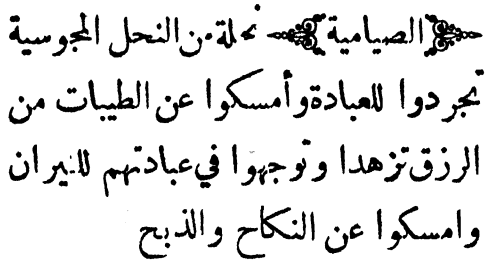 ﴿الصيامية﴾ نحلة من النحل المجوسية
تجردوا للعبادة وأمسكوا عن الطيبات من
الرزق تزهدا وتوجهوا في عبادتهم للنيران
وامسكوا عن النكاح والذبح